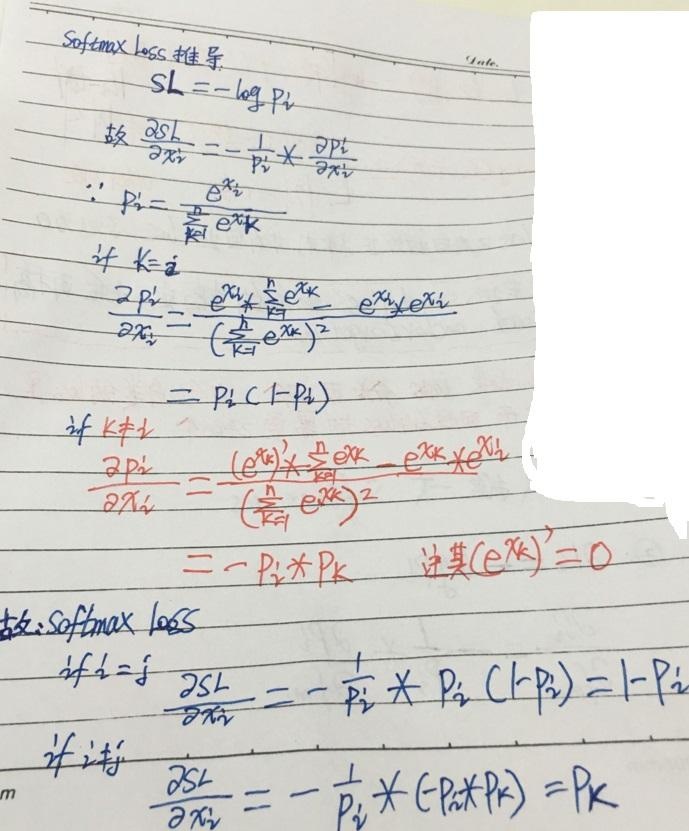 Softmax Loss 推导
Date.
SL = -log Pi
故 ∂SL/∂xi = -1/Pi * ∂Pi/∂xi
∵ Pi = e^xi / ∑_{k=1}^{n} e^xk
if K=i
∂Pi/∂xi = (e^xi * ∑_{k=1}^{n} e^xk - e^xi * e^xi) / (∑_{k=1}^{n} e^xk)^2
= Pi (1-Pi)
if K≠i
∂Pi/∂xi = ((e^xk)' * ∑_{k=1}^{n} e^xk - e^xk * e^xi) / (∑_{k=1}^{n} e^xk)^2
= -Pi * PK (e^xk)' = 0
故: Softmax loss
if i=j ∂SL/∂xi = -1/Pi * Pi (1-Pi) = 1-Pi
if i≠j
∂SL/∂xi = -1/Pi * (-Pi*PK) = PK
m